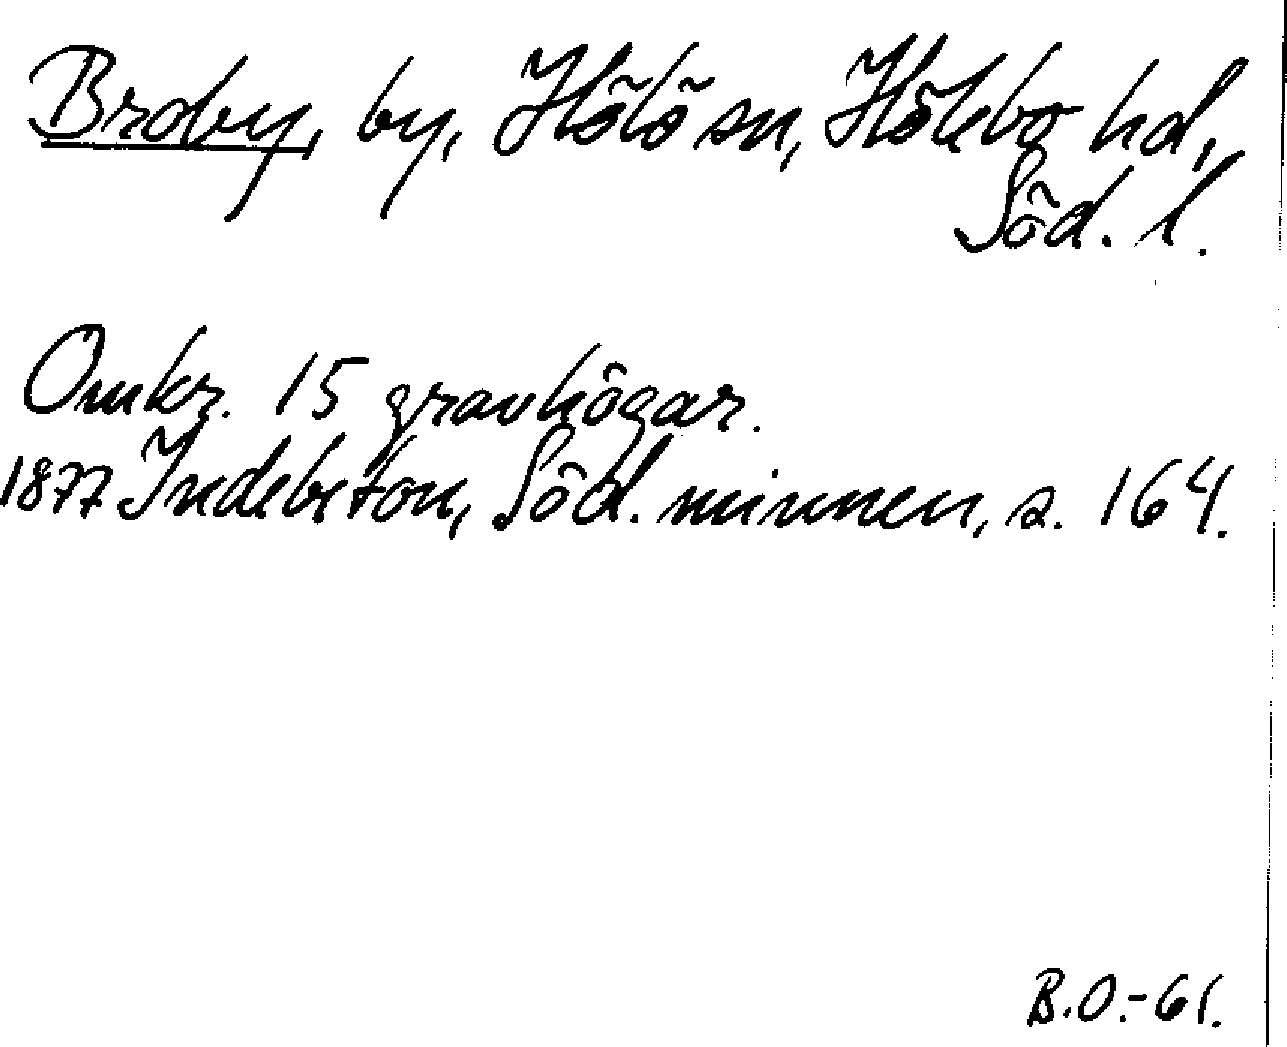 Broby, by, Hölö sn, Hölebo hd,
Söd. l.
Omkr. 15 gravhögar.
1877 Indebetou, Söd. minnen, s. 164.
B.O.-61.